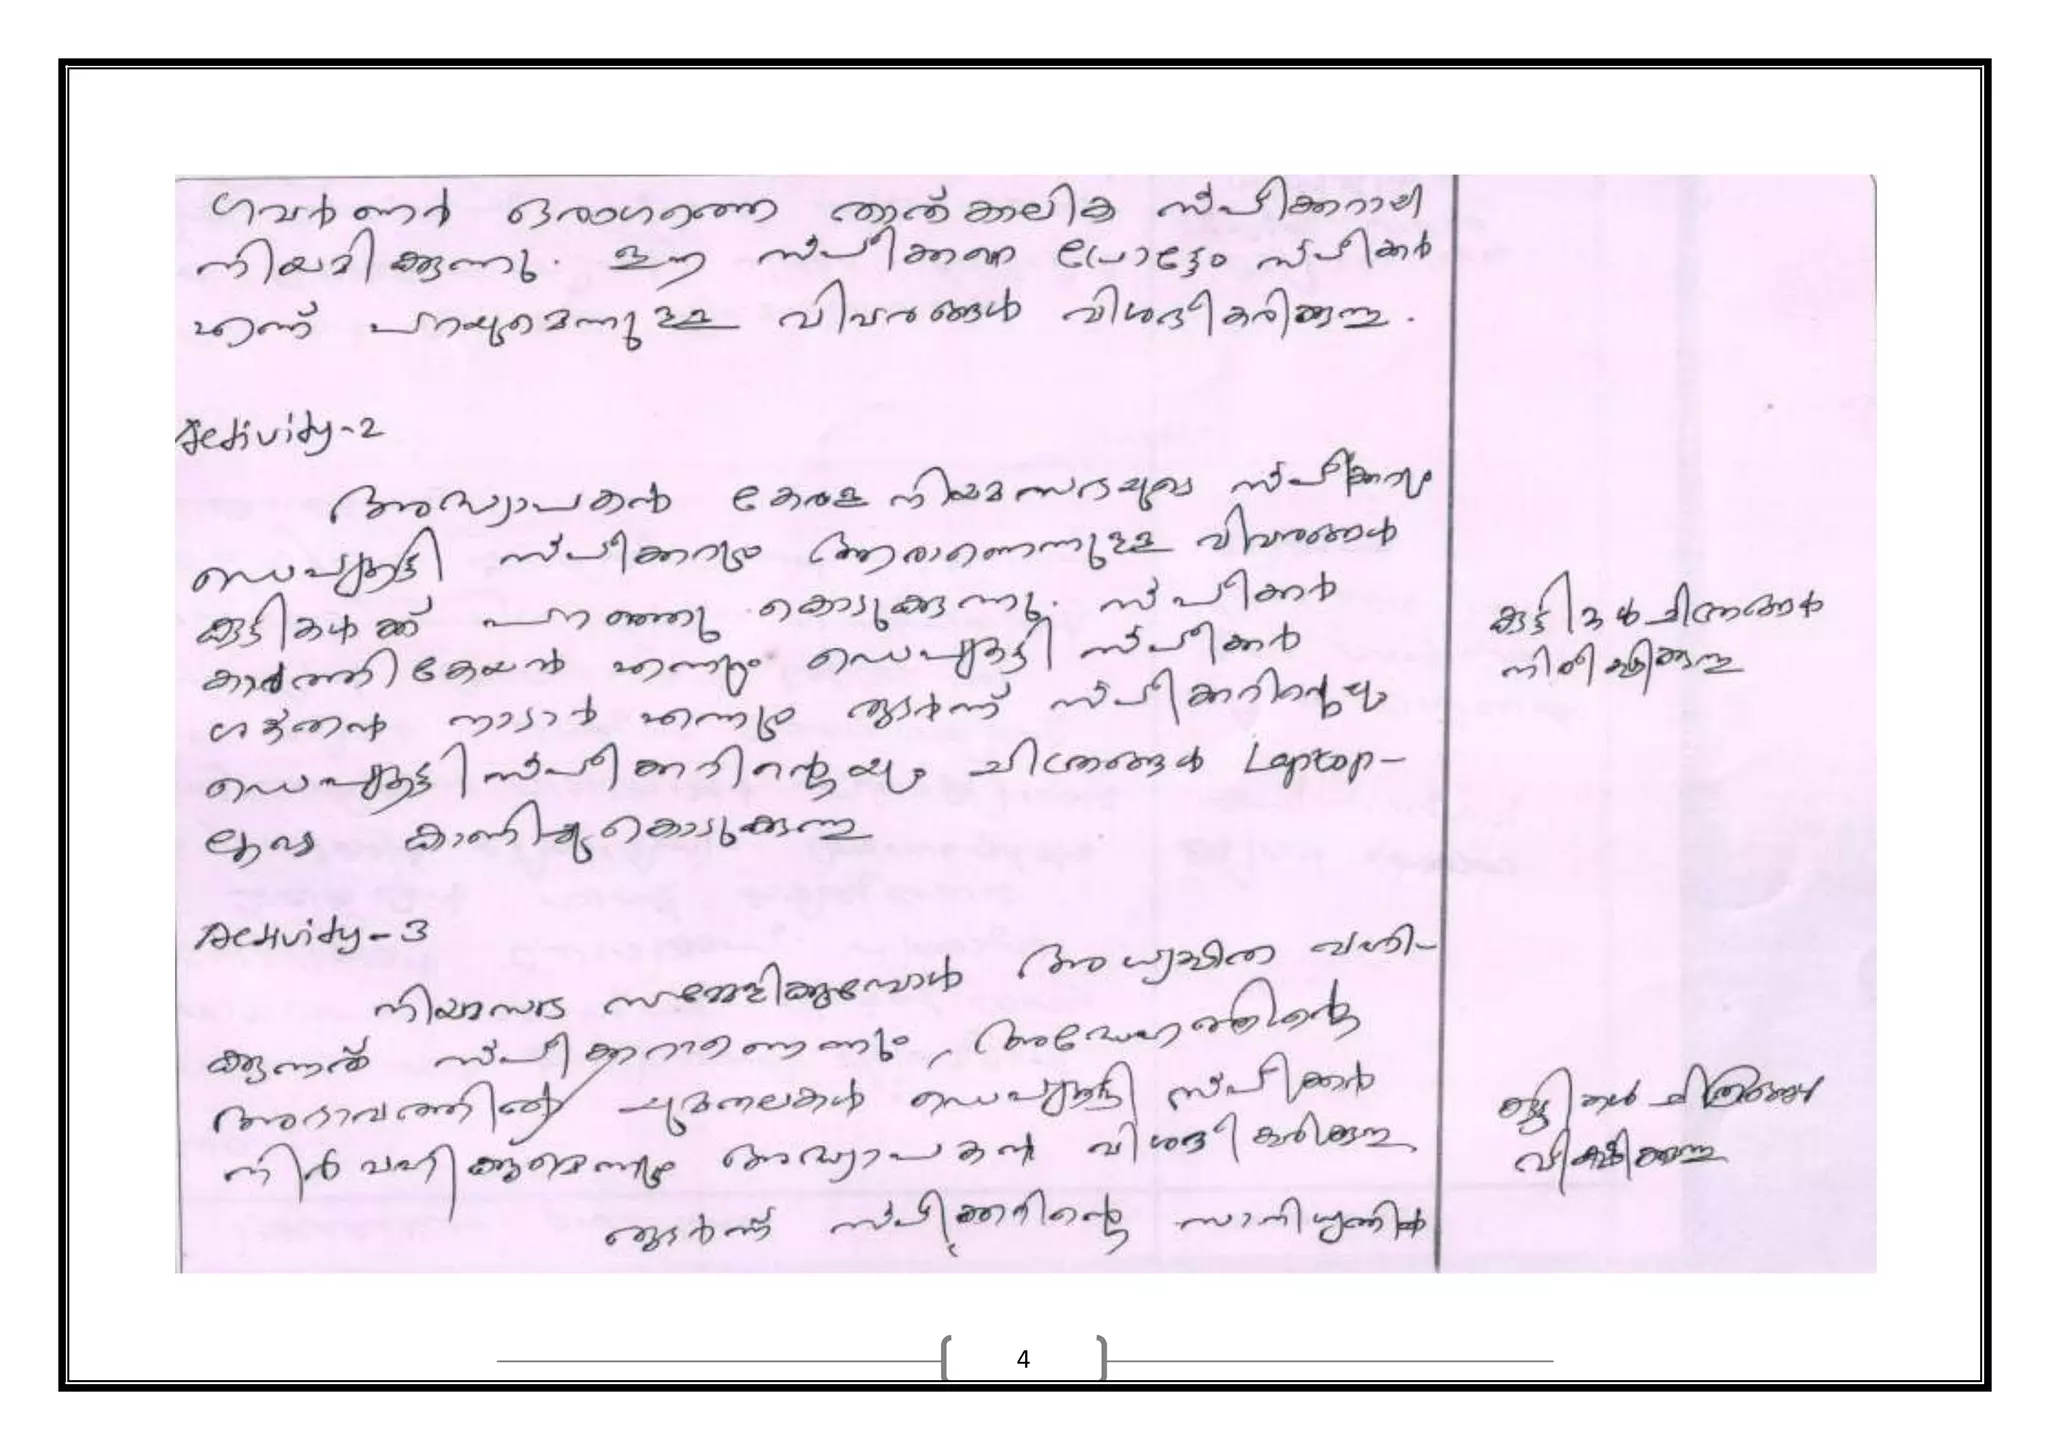 ഗവർണർ ഒരാഗത്തെ താത്കാലിക സ്പീക്കറായി
നിയമിക്കുന്നു. ഈ സ്പീക്കറെ പ്രോട്ടം സ്പീക്കർ
എന്ന് പറയുമെന്നുള്ള വിവരങ്ങൾ വിശദീകരിക്കുന്നു.
Activity-2
അദ്ധ്യാപകൻ കേരള നിയമസഭയുടെ സ്പീക്കറും
ഡെപ്യൂട്ടി സ്പീക്കറും ആരാണെന്നുള്ള വിവരങ്ങൾ
കുട്ടികൾക്ക് പറഞ്ഞു കൊടുക്കുന്നു. സ്പീക്കർ
കാർത്തികേയൻ എന്നും ഡെപ്യൂട്ടി സ്പീക്കർ
ശക്തൻ നാടാർ എന്നും തുടർന്ന് സ്പീക്കറിന്റെയും
ഡെപ്യൂട്ടി സ്പീക്കറിന്റെയും ചിത്രങ്ങൾ Laptop-
ലൂടെ കാണിച്ചുകൊടുക്കുന്നു
കുട്ടികൾ ചിത്രങ്ങൾ
നിരീക്ഷിക്കുന്നു
Activity-3
നിയമസഭ സമ്മേളിക്കുമ്പോൾ അധ്യക്ഷത വഹി-
ക്കുന്നത് സ്പീക്കറാണെന്നും, അദ്ദേഹത്തിന്റെ
അഭാവത്തിൽ ചുമതലകൾ ഡെപ്യൂട്ടി സ്പീക്കർ
നിർവഹിക്കുമെന്നും അദ്ധ്യാപകൻ വിശദീകരിക്കുന്നു
തുടർന്ന് സ്പീക്കറിന്റെ സാനിധ്യത്തിൽ
കുട്ടികൾ ചിത്രങ്ങൾ
വീക്ഷിക്കുന്നു
4